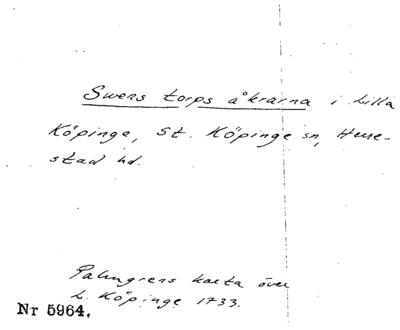 Swens torps åkrarna i Lilla
Köpinge, St. Köpinge sn, Herre-
stad hd.
Palmgrens karta över
L. Köpinge 1733.
Nr 5964.